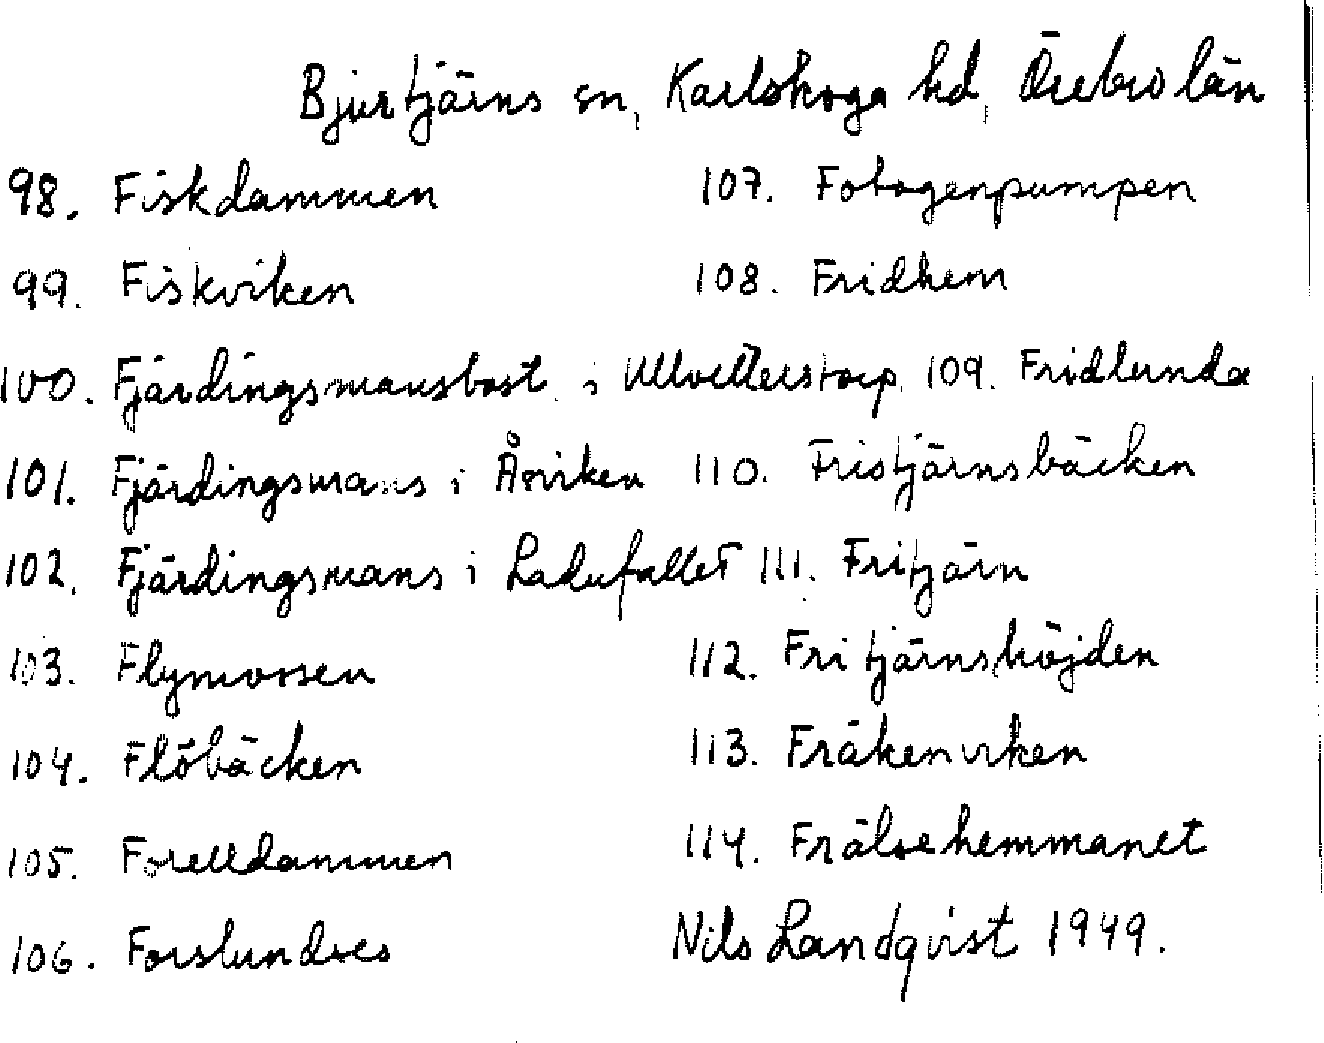 Bjurtjärns sn, Karlskoga hd, Örebro län
98. Fiskdammen
107. Fotogenpumpen
99. Fiskviken
108. Fridhem
100. Fjärdingsmansbost. i Ullvetterstorp 109. Fridlunda
101. Fjärdingsmans i Åviken 110. Fristjärnsbäcken
102. Fjärdingsmans i Ladufallet 111. Fritjärn
103. Flymossen
112. Fritjärnshöjden
104. Flöbäcken
113. Fräkenviken
105. Forelldammen
114. Frälsehemmanet
106. Forslundses
Nils Landqvist 1949.